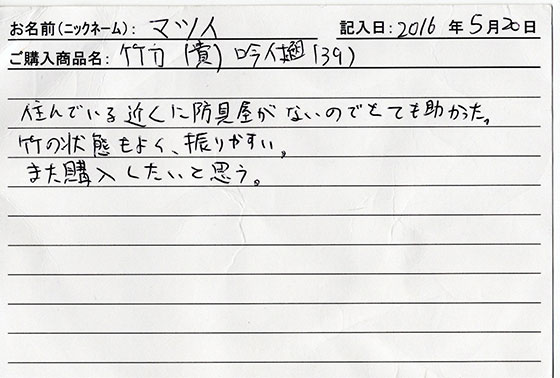 お名前(ニックネーム): マツイ 記入日: 2016 年 5月 20日
ご購入商品名: 竹刀 (39)
住んでいる近くに防具屋がないのでとても助かった。
竹の状態もよく、振りやすい。
また購入したいと思う。